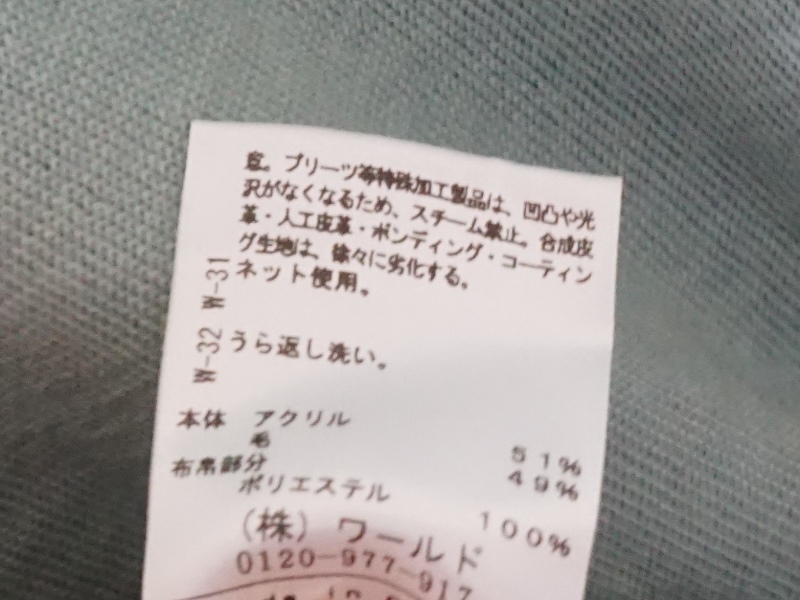 意。プリーツ等特殊加工製品は、凹凸や光
沢がなくなるため、スチーム禁止。合成皮
革・人工皮革・ボンディング・コーティン
グ生地は、徐々に劣化する。
W-31 ネット使用。
W-32 うら返し洗い。
本体 アクリル 51%
毛 49%
布帛部分
ポリエステル 100%
(株)ワールド
0120-977-917